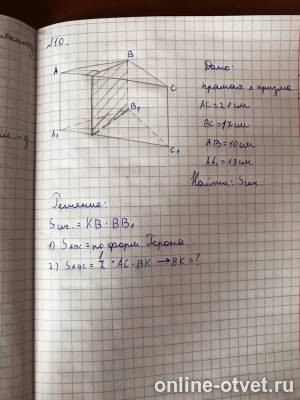 №10.
B
A
C
B₁
A₁
C₁
Дано:
прямая △ призма
AC=21см
BC=17см
AB=10см
AA₁=18см
Найти: Sсеч.
Решение:
Sсеч.=KB·BB₁
1) SABC=по форм. Герона
2) SABC=1/2·AC·BK→BK=?
online-otvet.ru